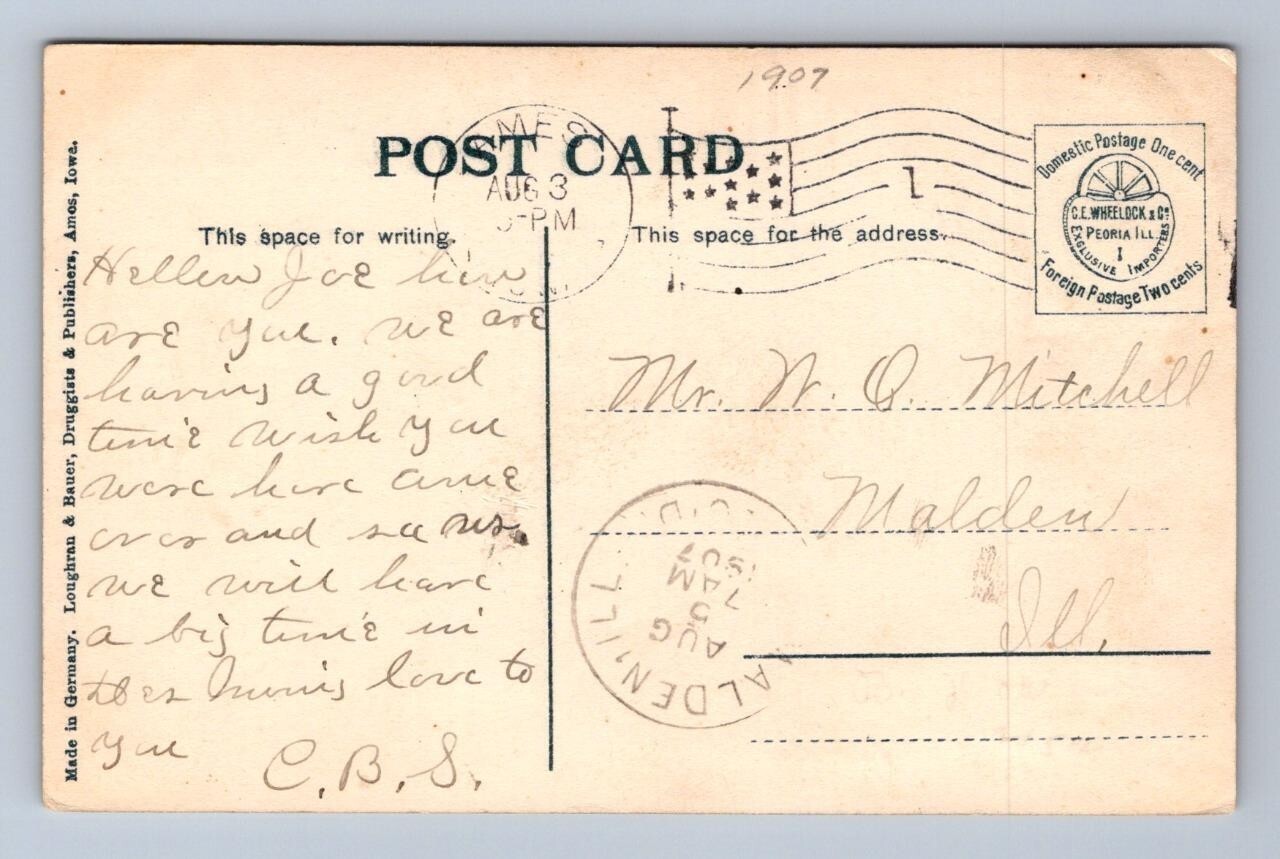 1907
POST CARD
AMES
AUG 3
-PM
1
Domestic Postage One cent
C.E. WHEELOCK & Co
PEORIA ILL.
1
EXCLUSIVE IMPORTERS
Foreign Postage Two cents
This space for writing.
This space for the address.
Made in Germany. Loughran & Bauer, Druggists & Publishers, Amos, Iowa.
Hellow Joe how
are you. we are
having a good
time wish you
were here come
over and see us
we will have
a big time in
Des Moines love to
you
C. B. S.
Mr. W. O. Mitchell
Malden
Ill.
MALDEN, ILL.
AUG
5
7 AM
07